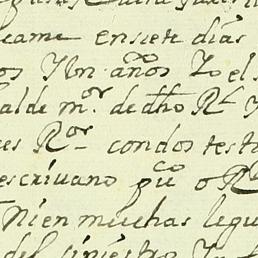 came en siete dias
os Y un años Yo el s
alde m.or de dho Rl
es R.or con dos testi
escriuano pu.co o R
Ni en muchas legu
del siniestro